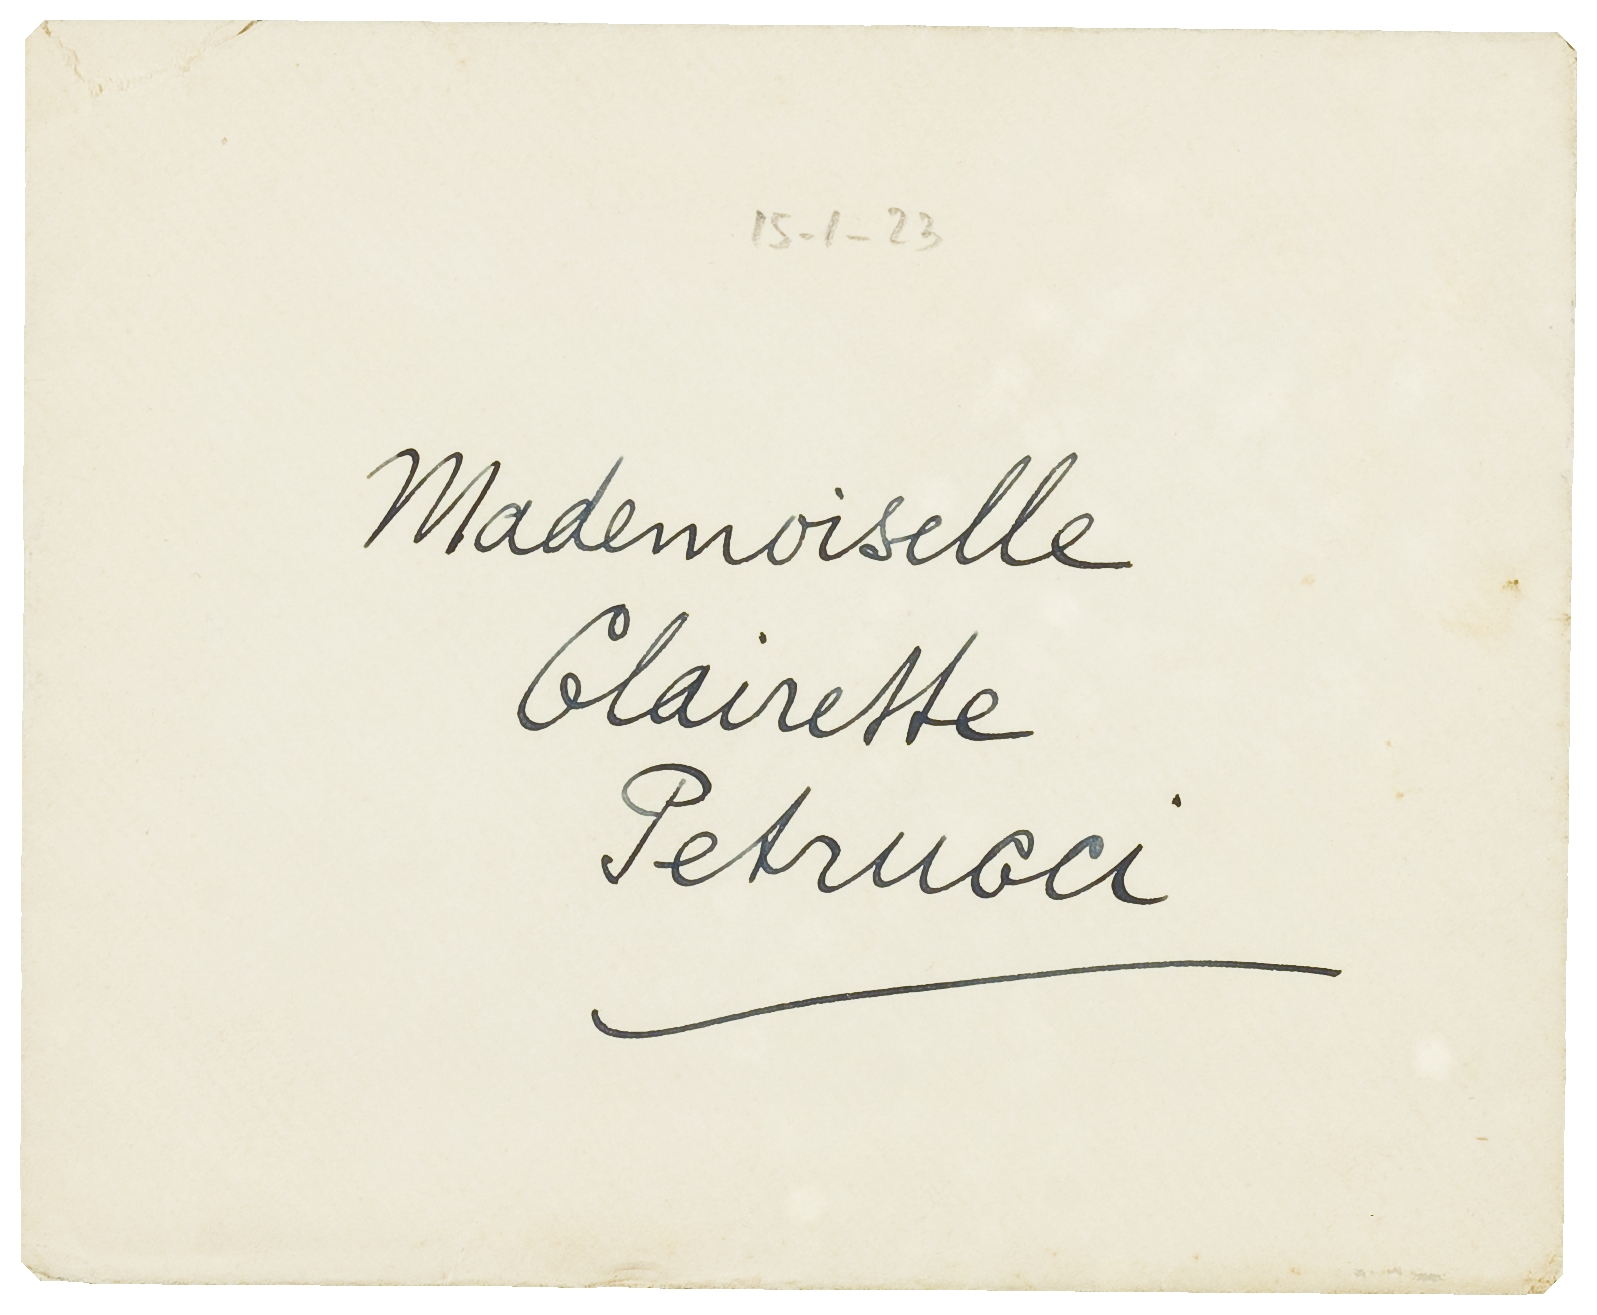 15-1-23
Mademoiselle
Clairette
Petrucci